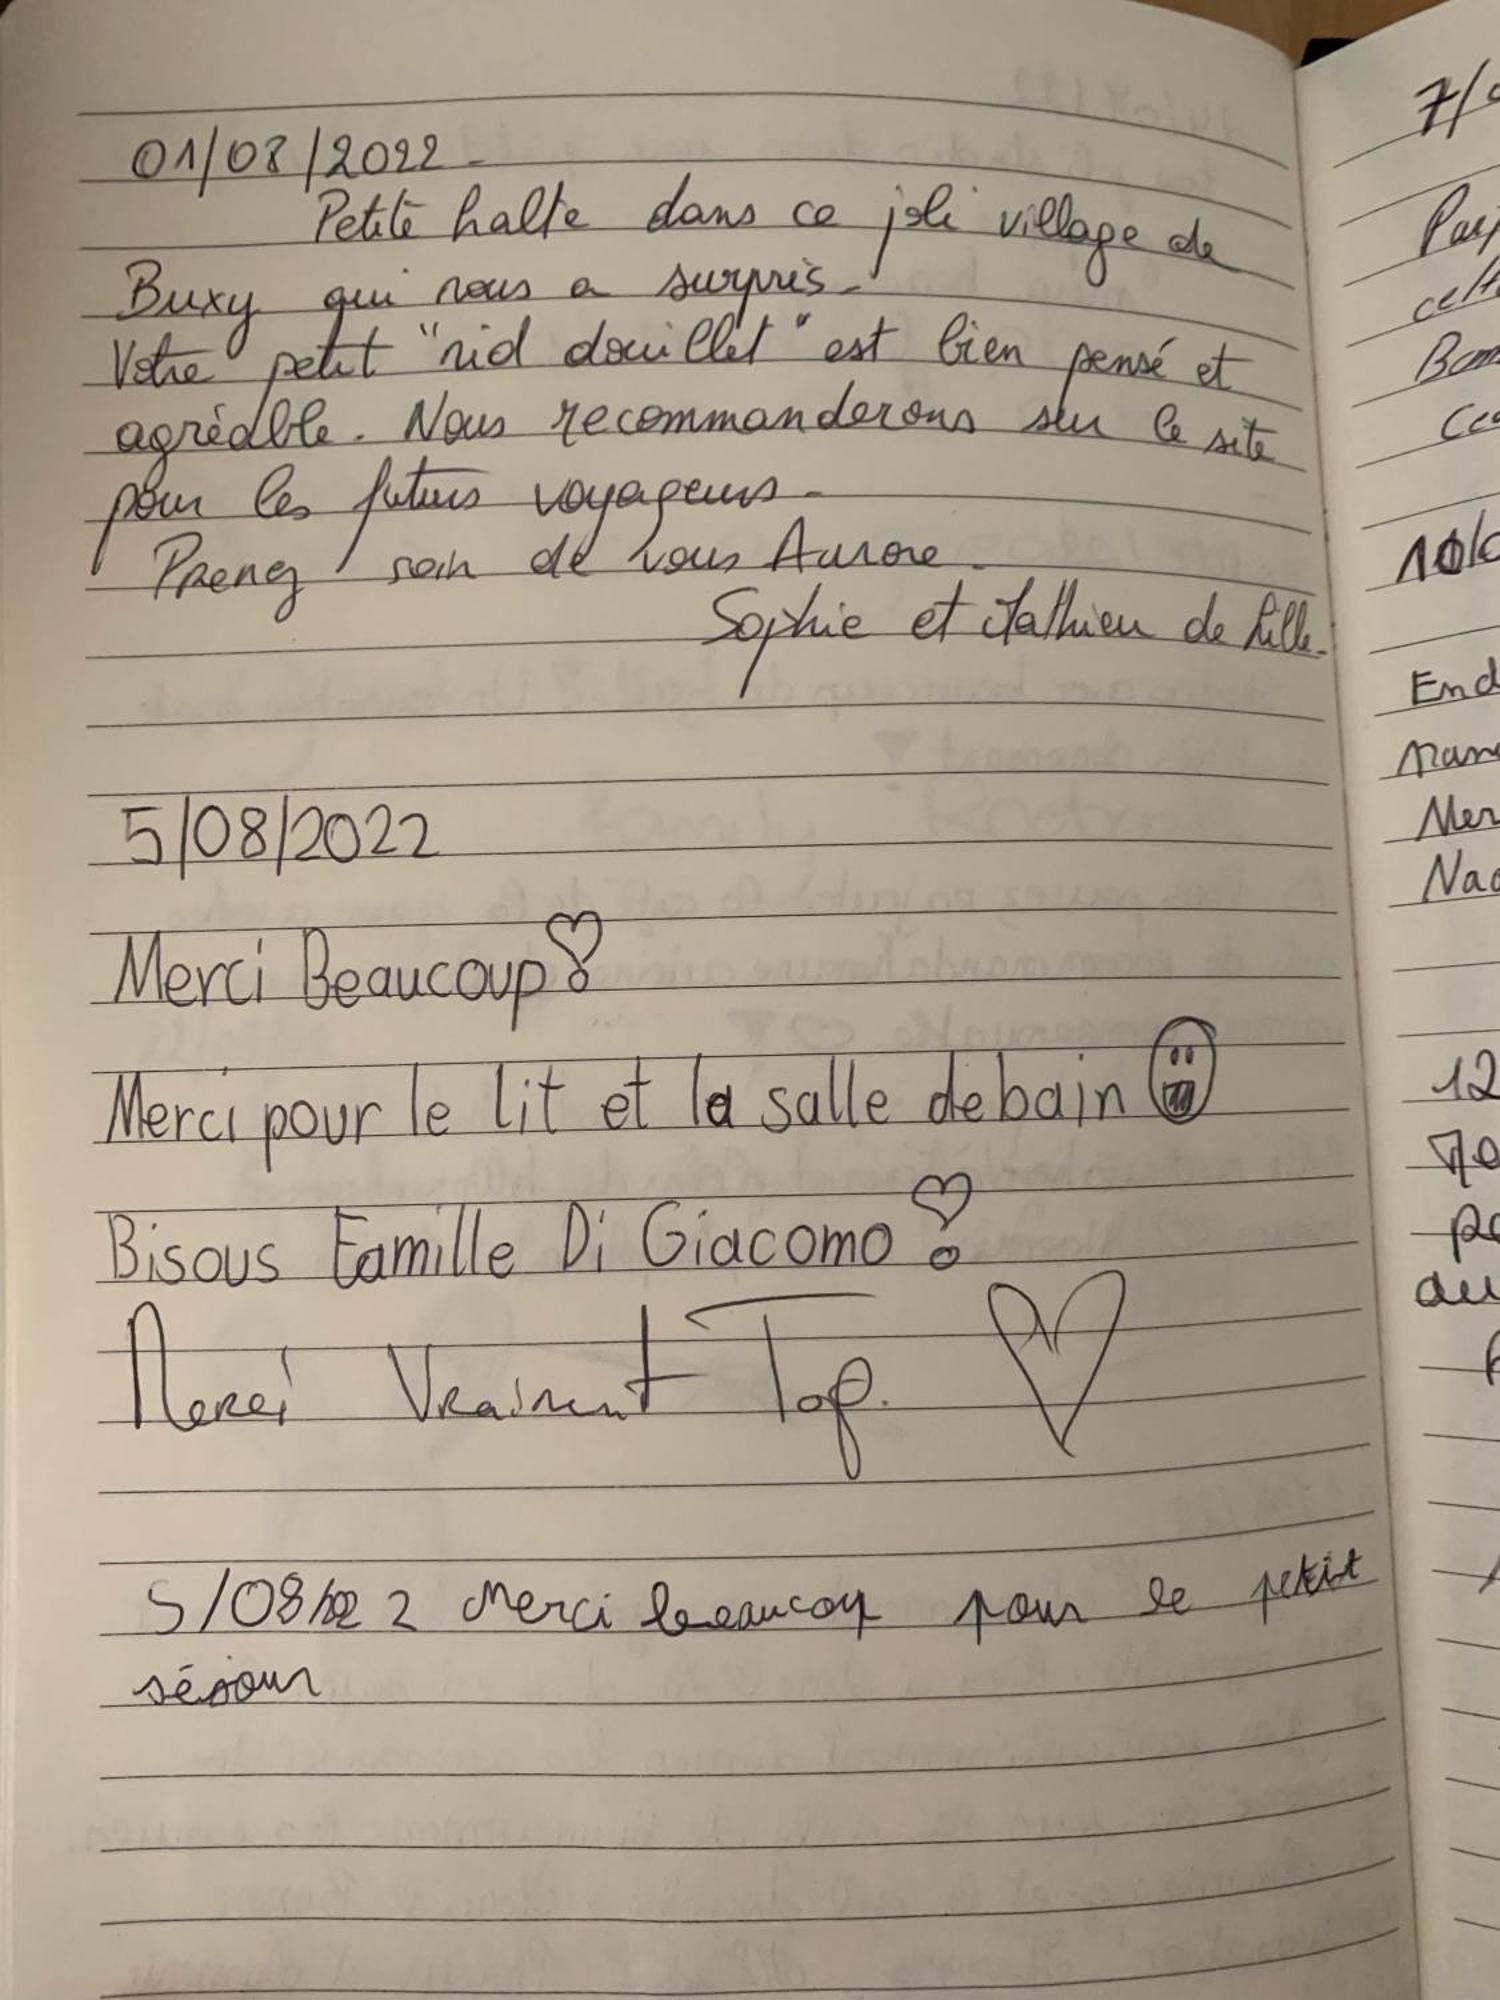 01/08/2022.
Petite halte dans ce joli village de
Buxy qui nous a surpris.
Votre petit "nid douillet" est bien pensé et
agréable. Nous recommanderons sur le site
pour les futurs voyageurs.
Prenez soin de vous Aurore.
Sophie et Mathieu de Lille.
5/08/2022
Merci Beaucoup
Merci pour le lit et la salle de bain
Bisous Famille Di Giacomo
Merci Vraiment Top.
5/08/2022 Merci beaucoup pour le petit
séjour
7/
cett
10/
End
Mer
12